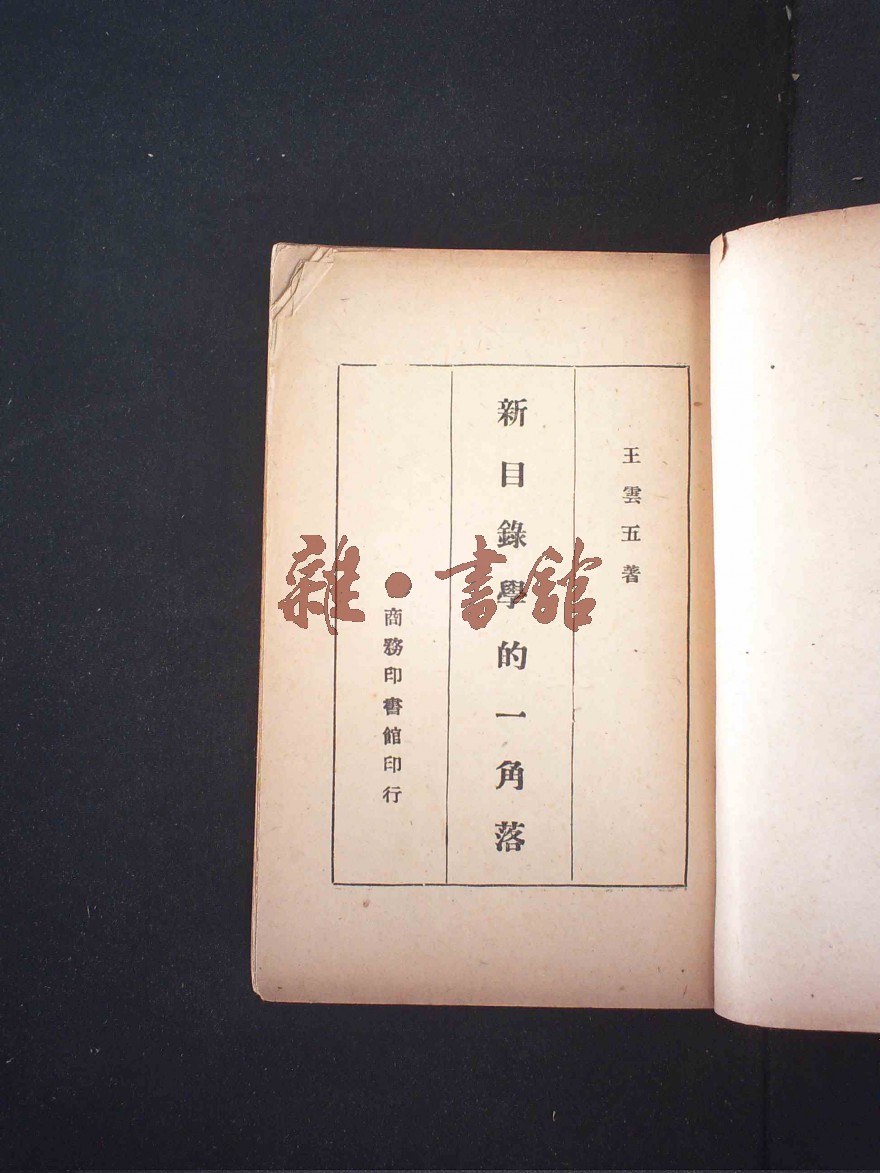 王雲五著
新目錄學的一角落
商務印書館印行
雜·書館